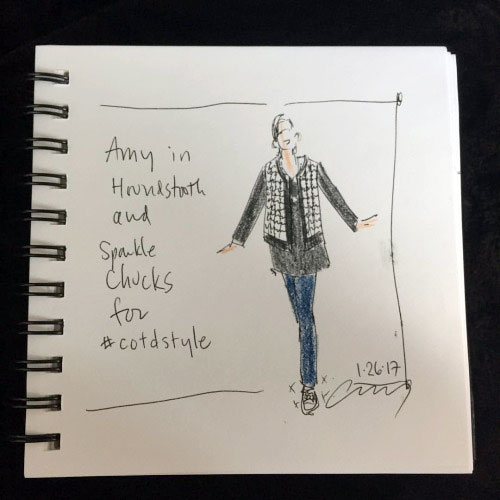 Amy in
Houndstooth
and
Sparkle
Chucks
for
#cotdstyle
1.26.17